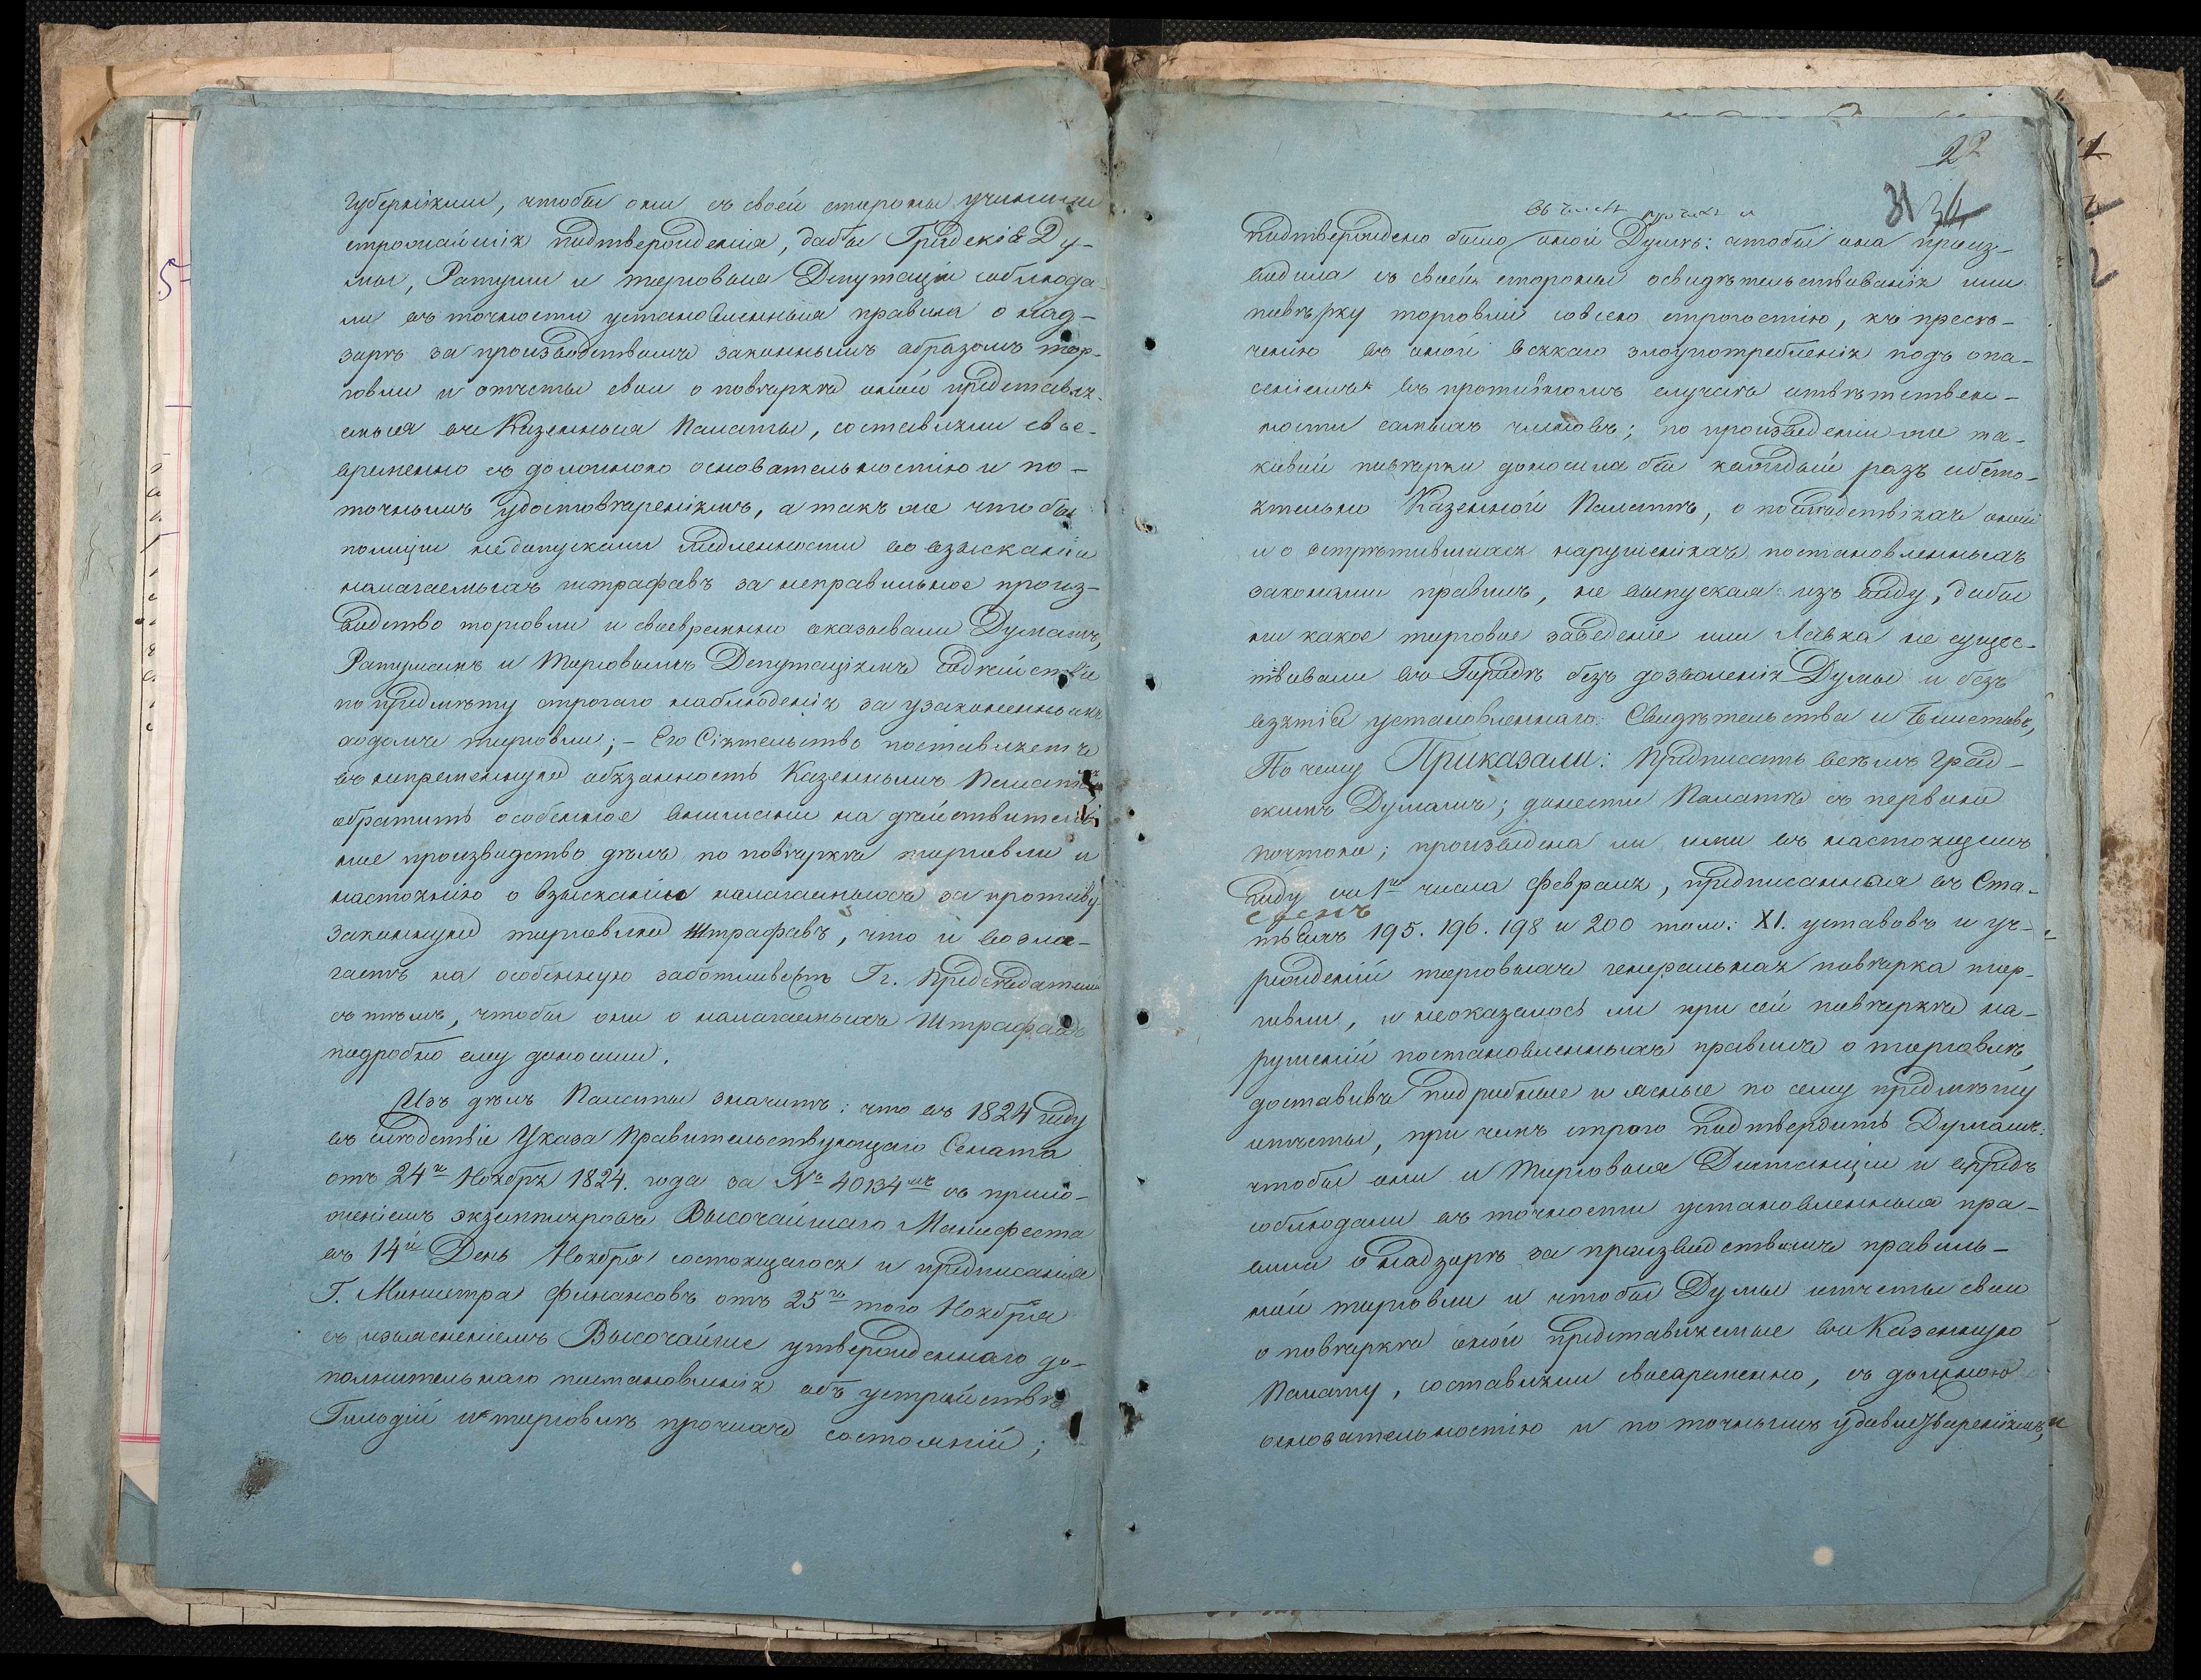 Губернскими, чтобы они съ своей стороны учинили
строжайшія подтвержденія, дабы Градскія Ду-
мы, Ратуши и торговыя Депутаціи соблюда-
ли въ точности установленныя правила о над-
зоръ за производствомъ законнымъ образомъ тор-
говли и отчеты свои о повѣркѣ оной представля-
емыя въ Казенныя Палаты, составляли свое-
временно съ должною основательностію и по
точнымъ удостовѣреніямъ, а такъ же чтобы
полиціи недопускали медленности во взысканіи
налагаемыхъ штрафовъ за неправильное произ-
водство торговли и своевременно оказывали Думамъ,
Ратушамъ и Торговымъ Депутаціямъ содѣйствіе
по предмѣту строгаго наблюденія за узаконеннымъ
ходомъ торговли; – Его Сіятельство поставляетъ
въ непременную обязанность Казеннымъ Палатамъ
обратить особенное вниманіе на дѣйствитель-
ное производство дѣлъ по повѣркѣ торговли и
настоянію о взысканіи налагаемыхъ за противу
законную торговлю Штрафовъ, что и возла-
гаетъ на особенную заботливость Гг. Предсѣдателей
съ тѣмъ, чтобы они о налагаемыхъ Штрафахъ
подробно ему доносили.
Изъ дѣлъ Палаты значитъ: что въ 1824 году
въ слѣдствіе Указа Правительствующаго Сената
отъ 24го Ноября 1824. года за № 40134мъ съ прило-
женіемъ экземпляровъ Высочайшаго Манифеста
въ 14й День Ноября состоящагося и предписанія
Г. Министра финансовъ отъ 25го того Ноября
съ изъясненіемъ Высочайше утвержденнаго до-
полнительнаго постановленія объ устройствѣ
Гильдій и торговлѣ прочихъ состояній;
22
31 34
въ числѣ прочихъ и
подтверждено было оной Думѣ: чтобы она произ-
водила съ своей стороны освидѣтельствованія или
повѣрку торговли со всею строгостію, къ пресѣ-
ченію въ оной всякаго злоупотребленія подъ опа-
сеніемъ въ противномъ случаѣ отвѣтствен-
ности самыхъ членовъ; по произведеніи же та-
ковой повѣрки доносила бы каждый разъ обсто-
ятельно Казенной Палатѣ, о послѣдствіяхъ оной
и о встрѣтившихся нарушеніяхъ постановленныхъ
законами правилъ, не выпуская изъ виду, дабы
ни какое торговое заведеніе или Лавка не сущес-
твовали въ Городѣ безъ дозволенія Думы и безъ
взятія установленнаго Свидѣтельства и Билетовъ,
По чему Приказали: Предписать всѣмъ Град-
скимъ Думамъ; донести Палатѣ съ первою
почтою; произведена ли ими въ настоящемъ
году съ 1го числа февраля, предписанная въ Ста-
тьяхъ 195. 196. 198 и 200 том: XI. уставовъ и уч-
режденій торговыхъ генеральная повѣрка тор-
говли, и неоказалось ли при сей повѣркѣ на-
рушеній постановленныхъ правилъ о торговлѣ,
доставивъ подробные и ясные по сему предмѣту
отчеты, при чемъ строго подтвердить Думамъ:
чтобы они и Торговыя Депутаціи и впредь
соблюдали въ точности установленныя пра-
вила о надзорѣ за производствомъ правиль-
ной торговли и чтобы Думы отчеты свои
о повѣркѣ оной представляемые въ Казенную
Палату, составляли своевременно, съ должною
основательностію и по точнымъ удостовѣреніямъ, и